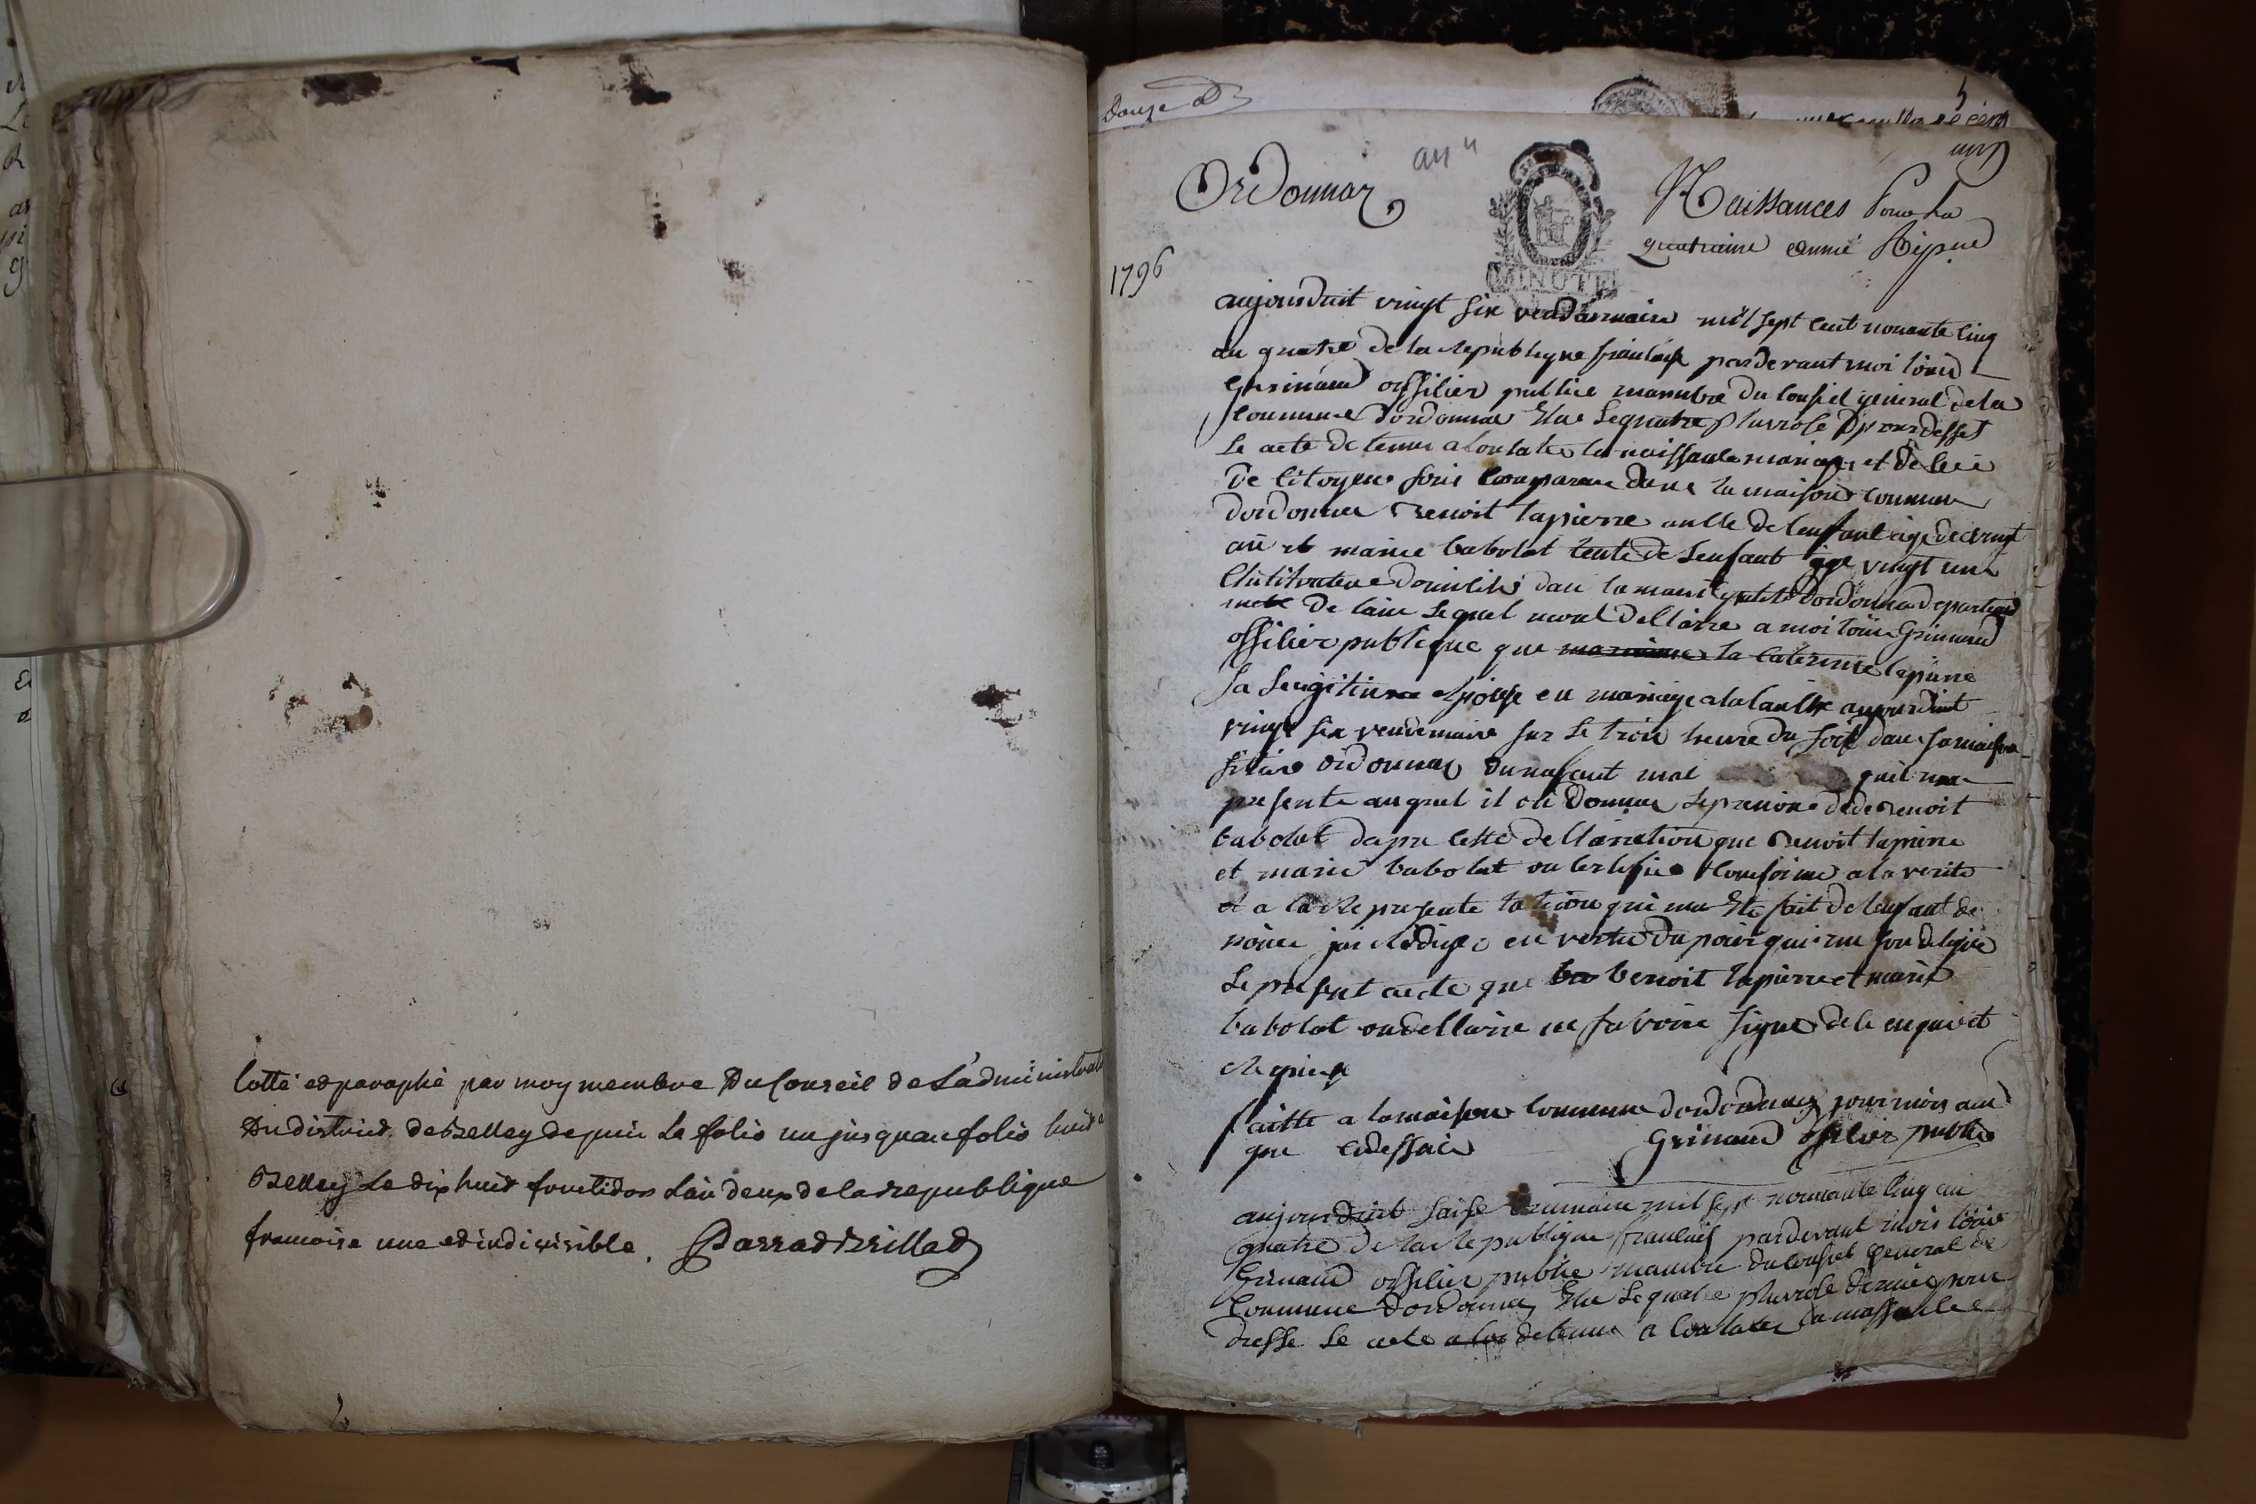 Cotté et paraphé par moy membre Du Conseil de L'administrat
Du district de Belley depuis Le folio un jusquau folio huit
Belley Le dix huit fructidor L'an deux de la republique
francoise une et indivisible. Parrad Brillad
Douze
5
Ordonnaz an 4
Naissances Pour La
quatrieme année Repu
MINUTE
1796
aujourduit vingt six vendarmaire mil sept cent nonante cinq
an quatre de la republique francaise par devant moi
Grimand offilier publice mambre du Conseil general de la
Commune Dordonnaz Elue Le quatre pluviose
Le acte de tenus a Constates les naissance mariages et deces
De Citoyens sons Comparue dans la maison Commune
dordonnaz Benoit lapierre oncle de lenfant age de vingt
an et marie babolat tente de Lenfant age vingt un
Cultivateur domiliés dans la dordonnaz departe
ment de lain Lequel mont dellaire a moi Grimand
offilier publique que Caterine lapierre
Sa Lengitime epouse en mariage alalauche aujourduit
vingt six vendemaire sur Le trois heure du soir dans sa maison
situé ordonnaz dun enfant mal quil ma
presente auquel il ont donner Le prenom de Benoit
babolat dapre cette dellaration que Benoit lapierre
et marie babolat on Certifié Conforme a la verité
et a la representation qui ma Eté fait de lenfant de
nomé jai rédigé en vertu du pouvoir qui me son delegué
Le present acte que benoit lapierre et marie
babolat on dellaire ne savoire signer de le enquis et
requis
faitte a la maison Commune dordonnaz jour mois an
que Cidessus Grimand offilier public
aujourduit saise brumaire mil sept nonante cinq an
quatre de la republique francais par devant mois
Grimand offilier public mambre du Conseil general de
Commune Dordonnaz Elu Le quatre pluviose dernier pour
dresse Le acte a les detenus a Constates la naissance